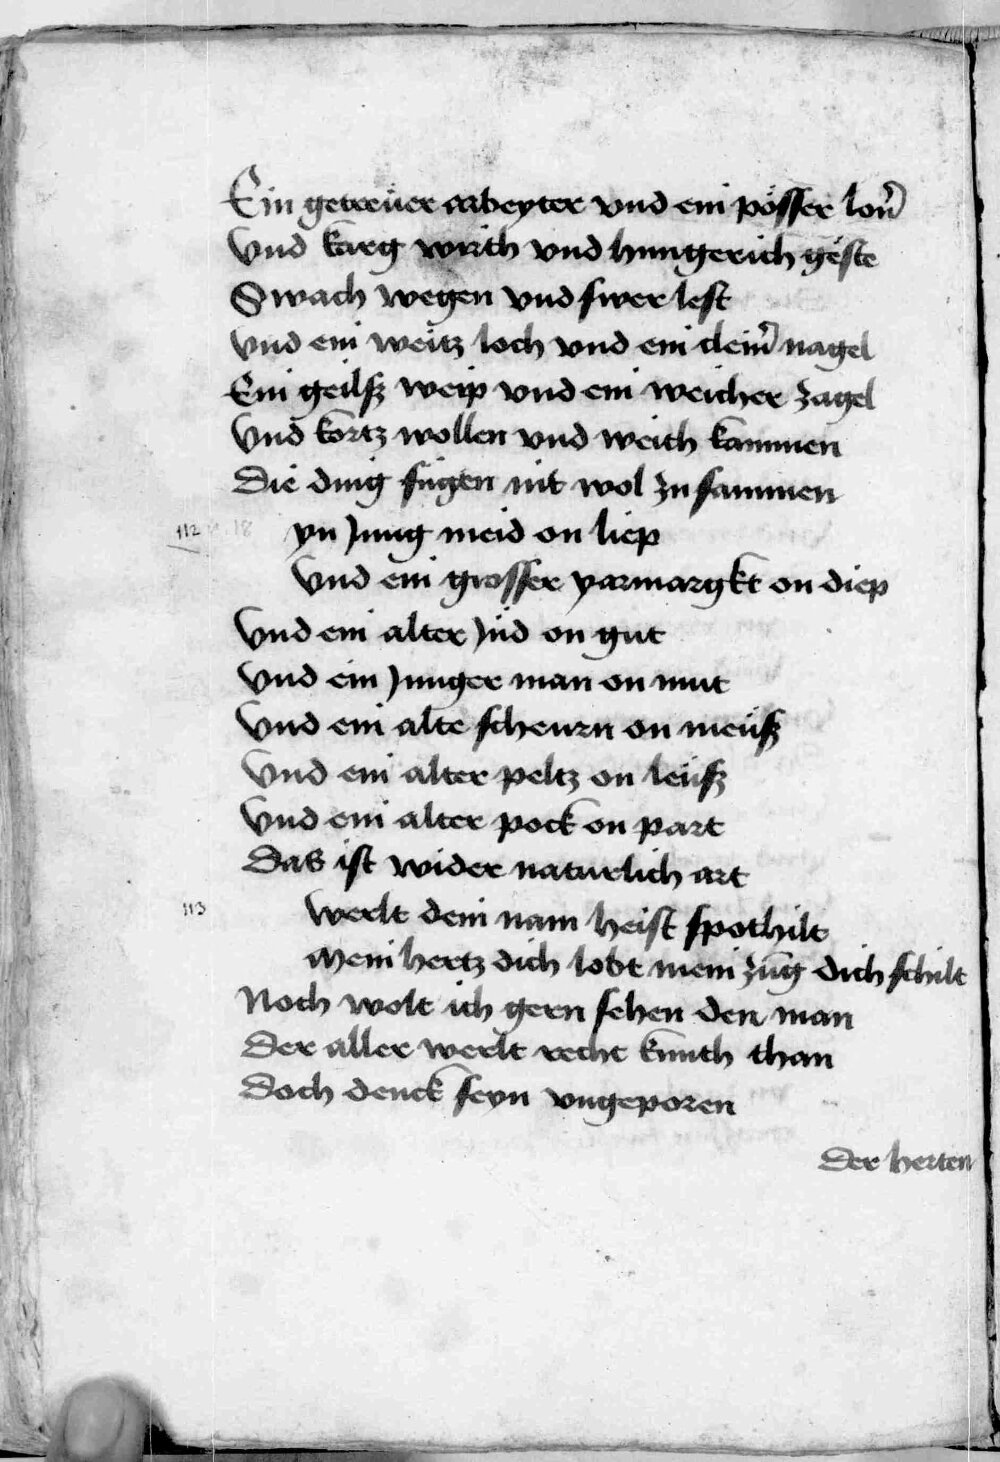 Ein getreüer arbeyter vnd ein pösser lon̄
Vnd karg wirth vnd hungerich geste
Swach wegen vnd swer lest
Vnd ein weitz loch vnd ein clein̄ nagel
Ein geilsz weip vnd ein weicher zagel
Vnd kortz wollen vnd weith kammen
Die ding fügen nit wol zu sammen
112 yn Jung meid on liep
Vnd ein grosser yarmargkt on diep
Vnd ein alter Jüd on gut
Vnd ein Junger man on mut
Vnd ein alte scheurn on meüsz
Vnd ein alter peltz on leüsz
Vnd ein alter pock on part
Das ist wider naturlich art
113 werlt dein nam heist spothilt
Mein hertz dich lobt mein zūg dich schilt
Noch wolt ich gern sehen den man
Der aller werlt recht kunth than
Doch denck seyn vngeporen
Der herten